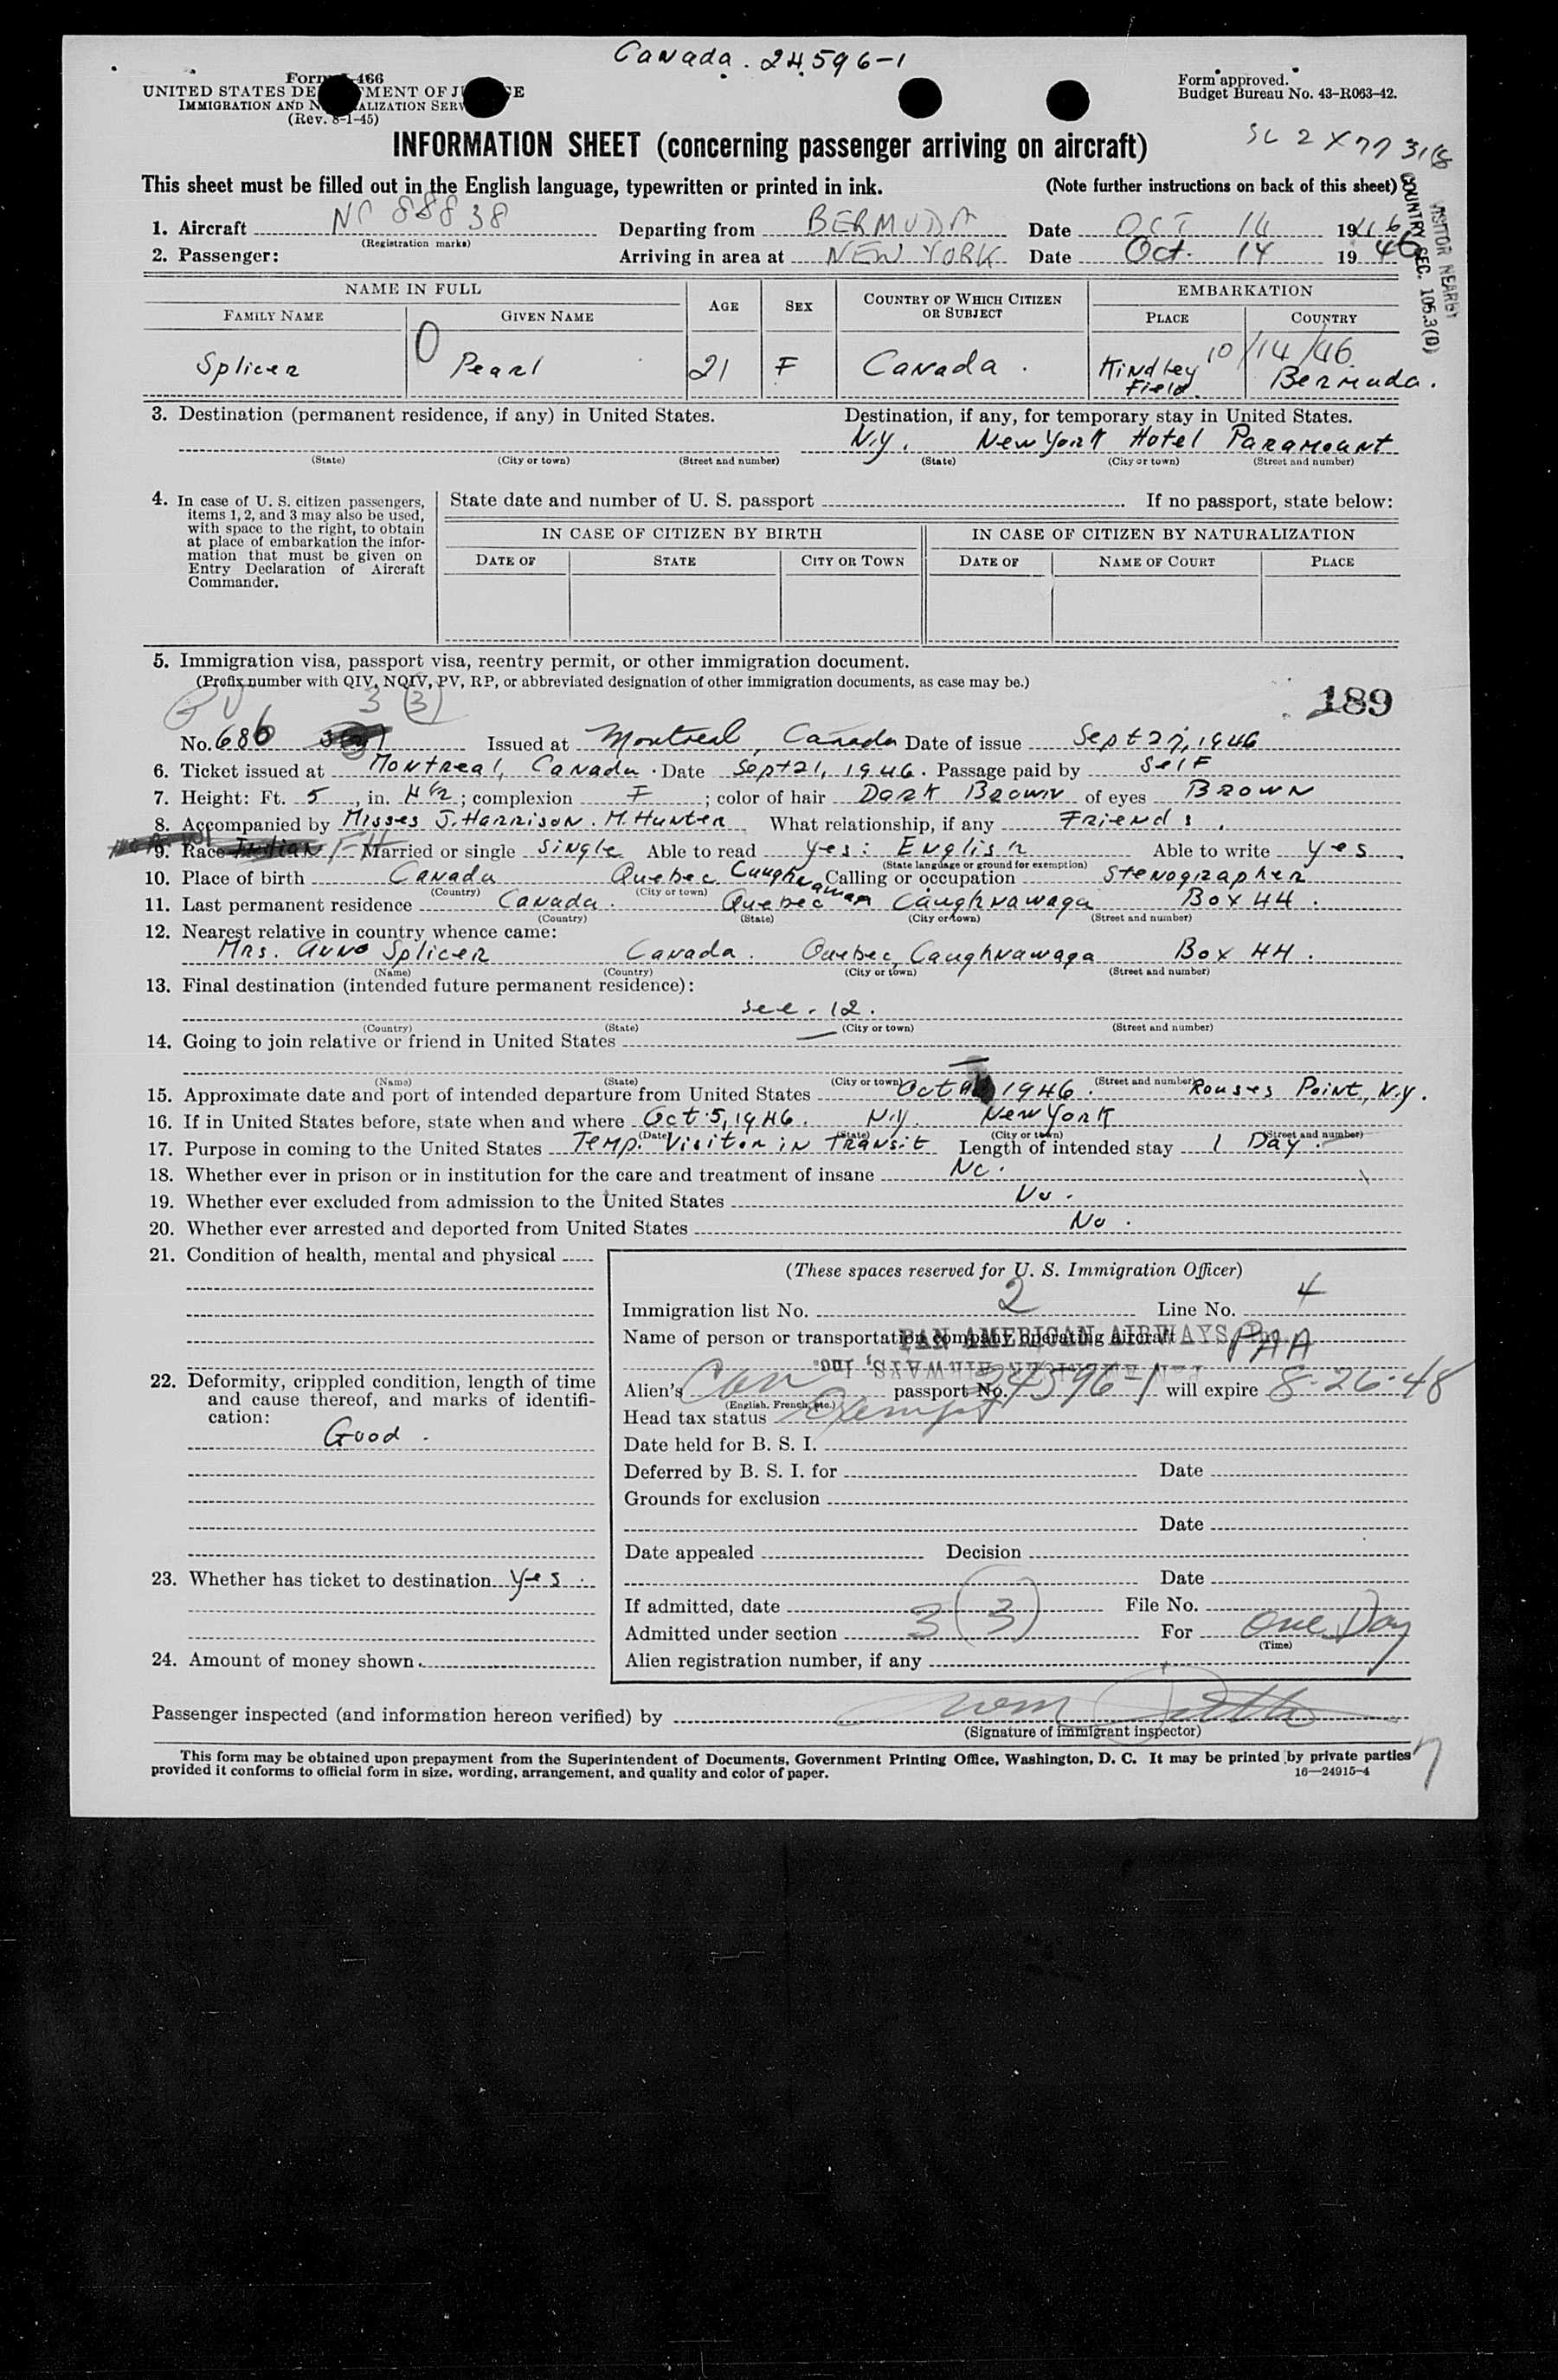 Canada. 24596-1
Form I-466
UNITED STATES DEPARTMENT OF JUSTICE
IMMIGRATION AND NATURALIZATION SERVICE
(Rev. 8-1-45)
Form approved.
Budget Bureau No. 43-R063-42.
INFORMATION SHEET (concerning passenger arriving on aircraft)
This sheet must be filled out in the English language, typewritten or printed in ink. (Note further instructions on back of this sheet)
VISITOR NEARBY
COUNTRY SEC. 105.3(D)
1. Aircraft NC 88838 Departing from BERMUDA Date OCT 14 1946
(Registration marks)
2. Passenger: Arriving in area at NEW YORK Date Oct. 14 1946
NAME IN FULL AGE SEX COUNTRY OF WHICH CITIZEN OR SUBJECT EMBARKATION
FAMILY NAME GIVEN NAME PLACE COUNTRY
10/14/46
Splicer Pearl 21 F Canada. Kindley Field. Bermuda.
3. Destination (permanent residence, if any) in United States. Destination, if any, for temporary stay in United States.
N.Y. New York Hotel Paramount
(State) (City or town) (Street and number) (State) (City or town) (Street and number)
4. In case of U. S. citizen passengers, items 1, 2, and 3 may also be used, with space to the right, to obtain at place of embarkation the information that must be given on Entry Declaration of Aircraft Commander.
State date and number of U. S. passport . If no passport, state below:
IN CASE OF CITIZEN BY BIRTH IN CASE OF CITIZEN BY NATURALIZATION
DATE OF STATE CITY OR TOWN DATE OF NAME OF COURT PLACE
5. Immigration visa, passport visa, reentry permit, or other immigration document.
(Prefix number with QIV, NQIV, PV, RP, or abbreviated designation of other immigration documents, as case may be.)
3 (3)
189
No. 686 Issued at Montreal, Canada Date of issue Sept 27, 1946
6. Ticket issued at Montreal, Canada. Date Sept 21, 1946. Passage paid by Self
7. Height: Ft. 5, in. 4½; complexion F; color of hair Dark Brown of eyes Brown
8. Accompanied by Misses J. Harrison. M. Hunter What relationship, if any Friends.
9. Race Indian Married or single Single Able to read yes: English Able to write yes.
(State language or ground for exemption)
10. Place of birth Canada Quebec Caughnawaga Calling or occupation Stenographer
(Country) (City or town)
11. Last permanent residence Canada. Quebec Caughnawaga Box 44.
(Country) (State) (City or town) (Street and number)
12. Nearest relative in country whence came:
Mrs. Anna Splicer Canada. Quebec, Caughnawaga Box 44.
(Name) (Country) (City or town) (Street and number)
13. Final destination (intended future permanent residence):
see. 12.
(Country) (State) (City or town) (Street and number)
14. Going to join relative or friend in United States —
—
(Name) (State) (City or town) (Street and number)
15. Approximate date and port of intended departure from United States Oct 1946. Rouses Point, N.Y.
16. If in United States before, state when and where Oct 5, 1946. N.Y. New York
(Date) (State) (City or town) (Street and number)
17. Purpose in coming to the United States Temp. Visitor in Transit Length of intended stay 1 Day.
18. Whether ever in prison or in institution for the care and treatment of insane No.
19. Whether ever excluded from admission to the United States No.
20. Whether ever arrested and deported from United States No.
21. Condition of health, mental and physical
22. Deformity, crippled condition, length of time and cause thereof, and marks of identification:
Good.
23. Whether has ticket to destination Yes.
24. Amount of money shown
(These spaces reserved for U. S. Immigration Officer)
Immigration list No. 2 Line No. 4
Name of person or transportation company operating aircraft PAA
PAN AMERICAN AIRWAYS, Inc.
PAN AMERICAN AIRWAYS, Inc.
Alien's Can passport No. 24596-1 will expire 8-26-48
(English, French, etc.)
Head tax status Exempt
Date held for B. S. I.
Deferred by B. S. I. for Date
Grounds for exclusion
Date
Date appealed Decision
Date
If admitted, date File No.
Admitted under section 3 (3) For One Day
(Time)
Alien registration number, if any
Passenger inspected (and information hereon verified) by
(Signature of immigrant inspector)
This form may be obtained upon prepayment from the Superintendent of Documents, Government Printing Office, Washington, D. C. It may be printed by private parties
provided it conforms to official form in size, wording, arrangement, and quality and color of paper. 16—24915-4